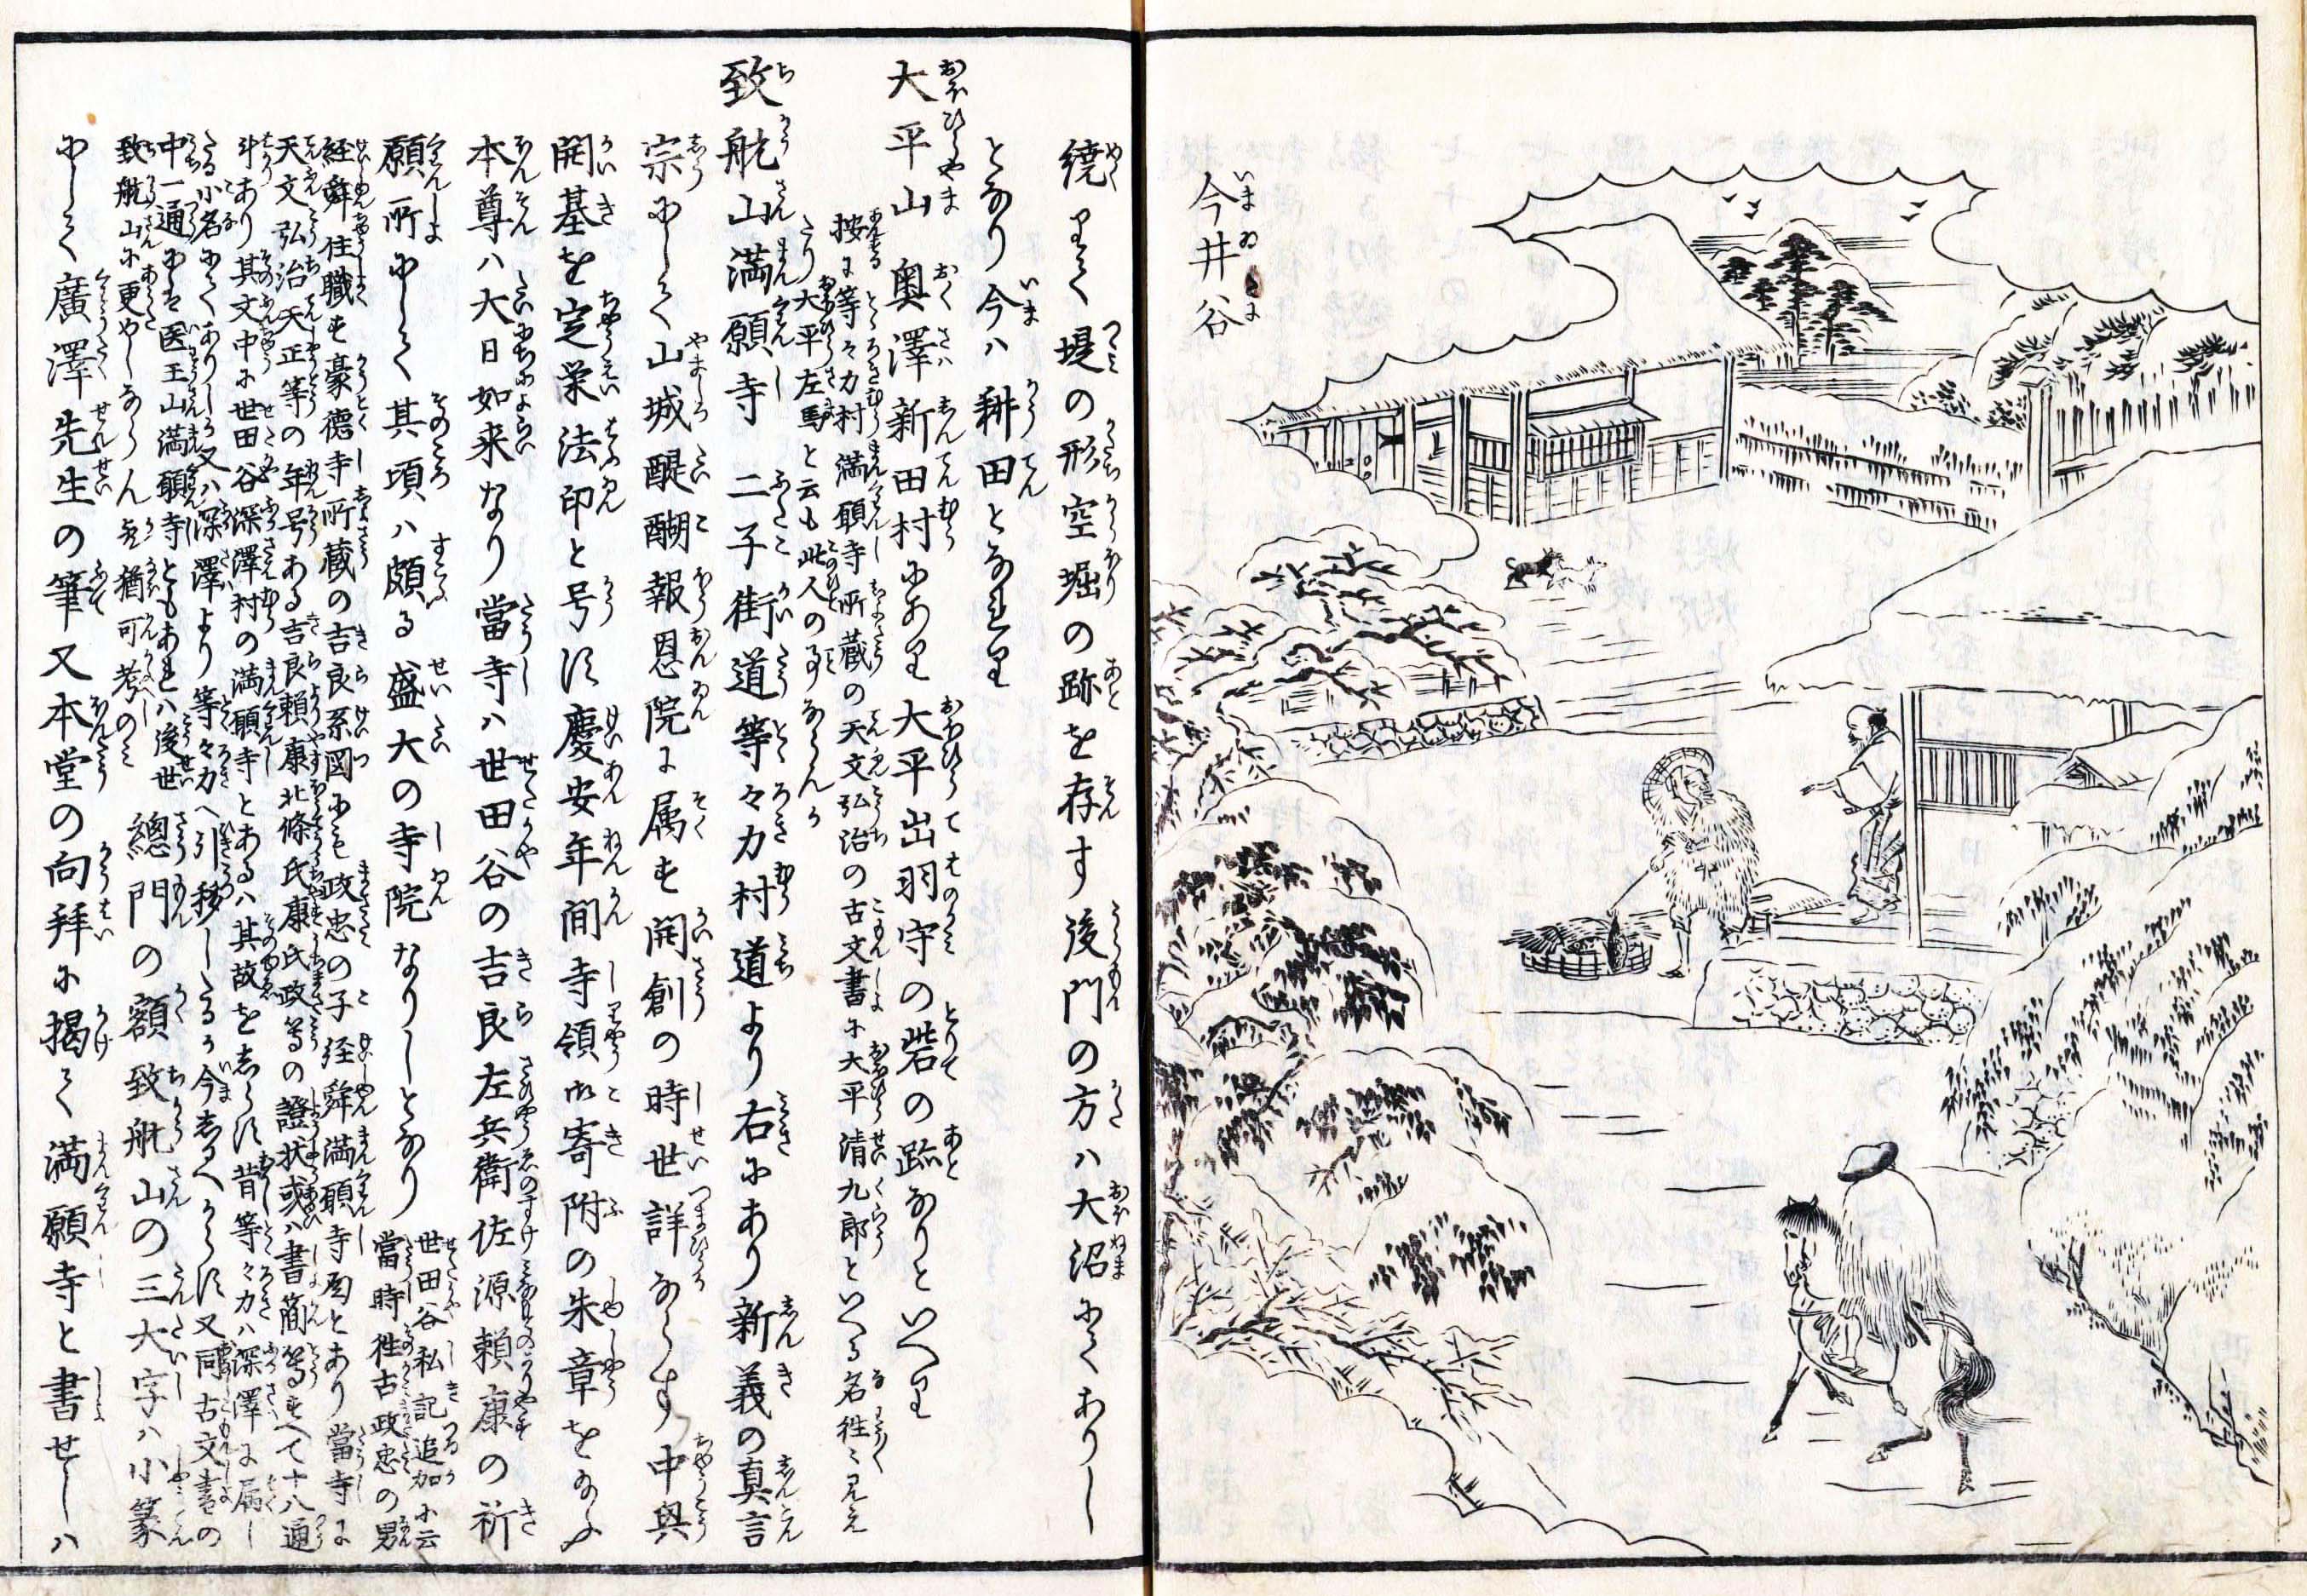 今井谷
繞りて堤の形空堀の跡を存す後門の方ハ大沼にてありし
となり今ハ耕田となれり
大平山 奥澤新田村にあり大平出羽守の砦の跡なりといへり
按に等々力村満願寺所蔵の天文弘治の古文書に大平清九郎といへる名往々見え
たり大平左馬と云も此人の事ならんか
致航山満願寺 二子街道等々力村道より右にあり新義の真言
宗にして山城醍醐報恩院に属す開創の時世詳ならす中興
開基を定栄法印と号す慶安年間寺領御寄附の朱章をなふ
本尊ハ大日如来なり當寺ハ世田谷の吉良左兵衛佐源頼康の祈
願所にして其頃ハ頗る盛大の寺院なりしとなり
世田谷私記追加に云
當時往古政忠の男
経舜住職す豪徳寺所蔵の吉良系図にも政忠の子経舜満願寺
とあり當寺に
天文弘治天正等の年号ある吉良頼康北條氏康氏政等の證状或ハ書簡等すへて十八通
斗あり其文中に世田谷深澤村の満願寺とあるハ其故をしらす昔等々力ハ深澤に属し
たる小名にてありしか又ハ深澤より等々力へ引移したるか今しるへからす又同古文書の
中一通にハ医王山満願寺ともあれハ後世
致航山に更しならん猶可考のみ
總門の額致航山の三大字ハ小篆
にして廣澤先生の筆又本堂の向拜に掲て満願寺と書せしハ